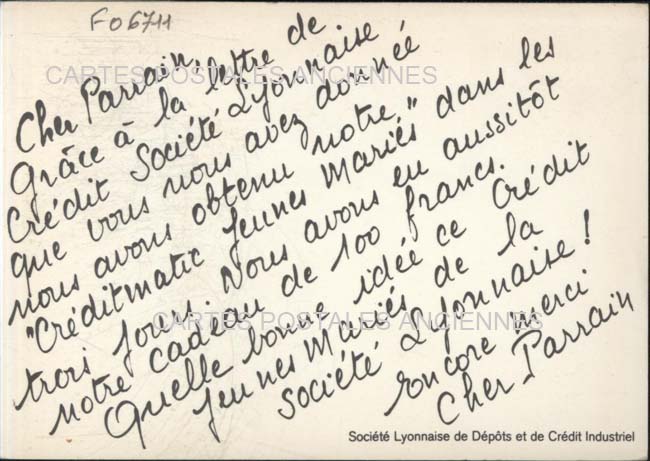 FO6711
Cher Parrain,
Grâce à la lettre de
Crédit Société Lyonnaise
que vous nous avez donnée
nous avons obtenu notre
"Créditmatic Jeunes Mariés" dans les
trois jours. Nous avons eu aussitôt
notre cadeau de 100 francs.
Quelle bonne idée ce Crédit
Jeunes Mariés de la
Société Lyonnaise !
Encore merci
Cher Parrain
Société Lyonnaise de Dépôts et de Crédit Industriel
CARTES POSTALES ANCIENNES
CARTES POSTALES ANCIENNES